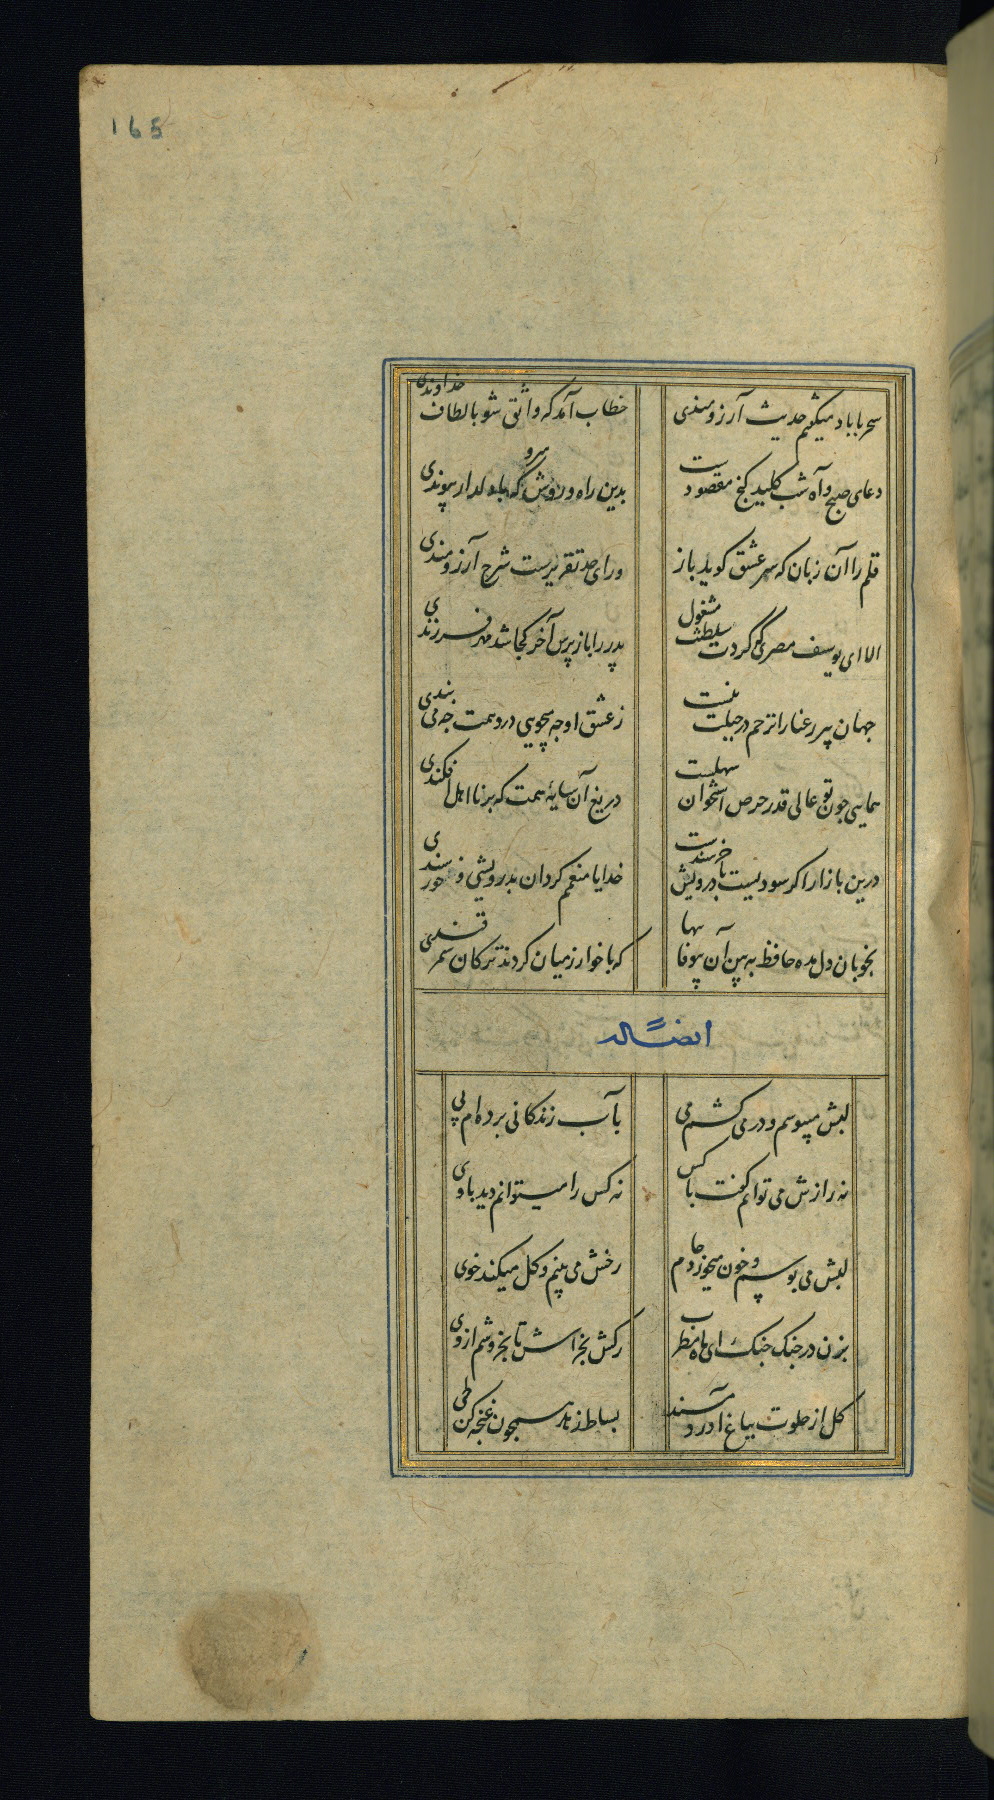 165
سحر با باد میگفتم حدیث آرزومندی
خطاب آمد که واثق شو بالطاف خداوندی
دعای صبح و آه شب کلید کنج مقصودست
بدین راه و روش میرو که با دلدار پیوندی
قلم را آن زبان که سر عشق کوید باز
ورای حد تقریرست شرح آرزومندی
الا ای یوسف مصری که کردت سلطنت مشغول
پدر را باز پرس آخر کجا شد مهر فرزندی
جهان پیر رعنا را ترحم در جبلت نیست
ز عشق او چه میجویی درو همت چه می بندی
همایی چون تو عالی قدر حرص استخوان سهلست
دریغ آن سایه همت که بر نااهل افکندی
درین بازار اکر سودیست با درویش خرسندست
خدایا منعمم کردان بدرویشی و خورسندی
بخوبان دل مده حافظ به بین آن بیوفایها
که با خوارزمیان کردند ترکان سمرقندی
ایضاً له
لبش میبوسم و در می کشم می
بآب زندکانی برده ام پی
نه رازش می توانم کفت با کس
نه کس را میتوانم دید با وی
لبش می بوسد و خون میخورد جام
رخش می بینم و کل میکند خوی
بزن در چنک چنک ای ماه مطرب
رکش بخراش تا بخروشم از وی
کل از خلوت بباغ آورد مسند
بساط زهد همچون غنچه کن طی